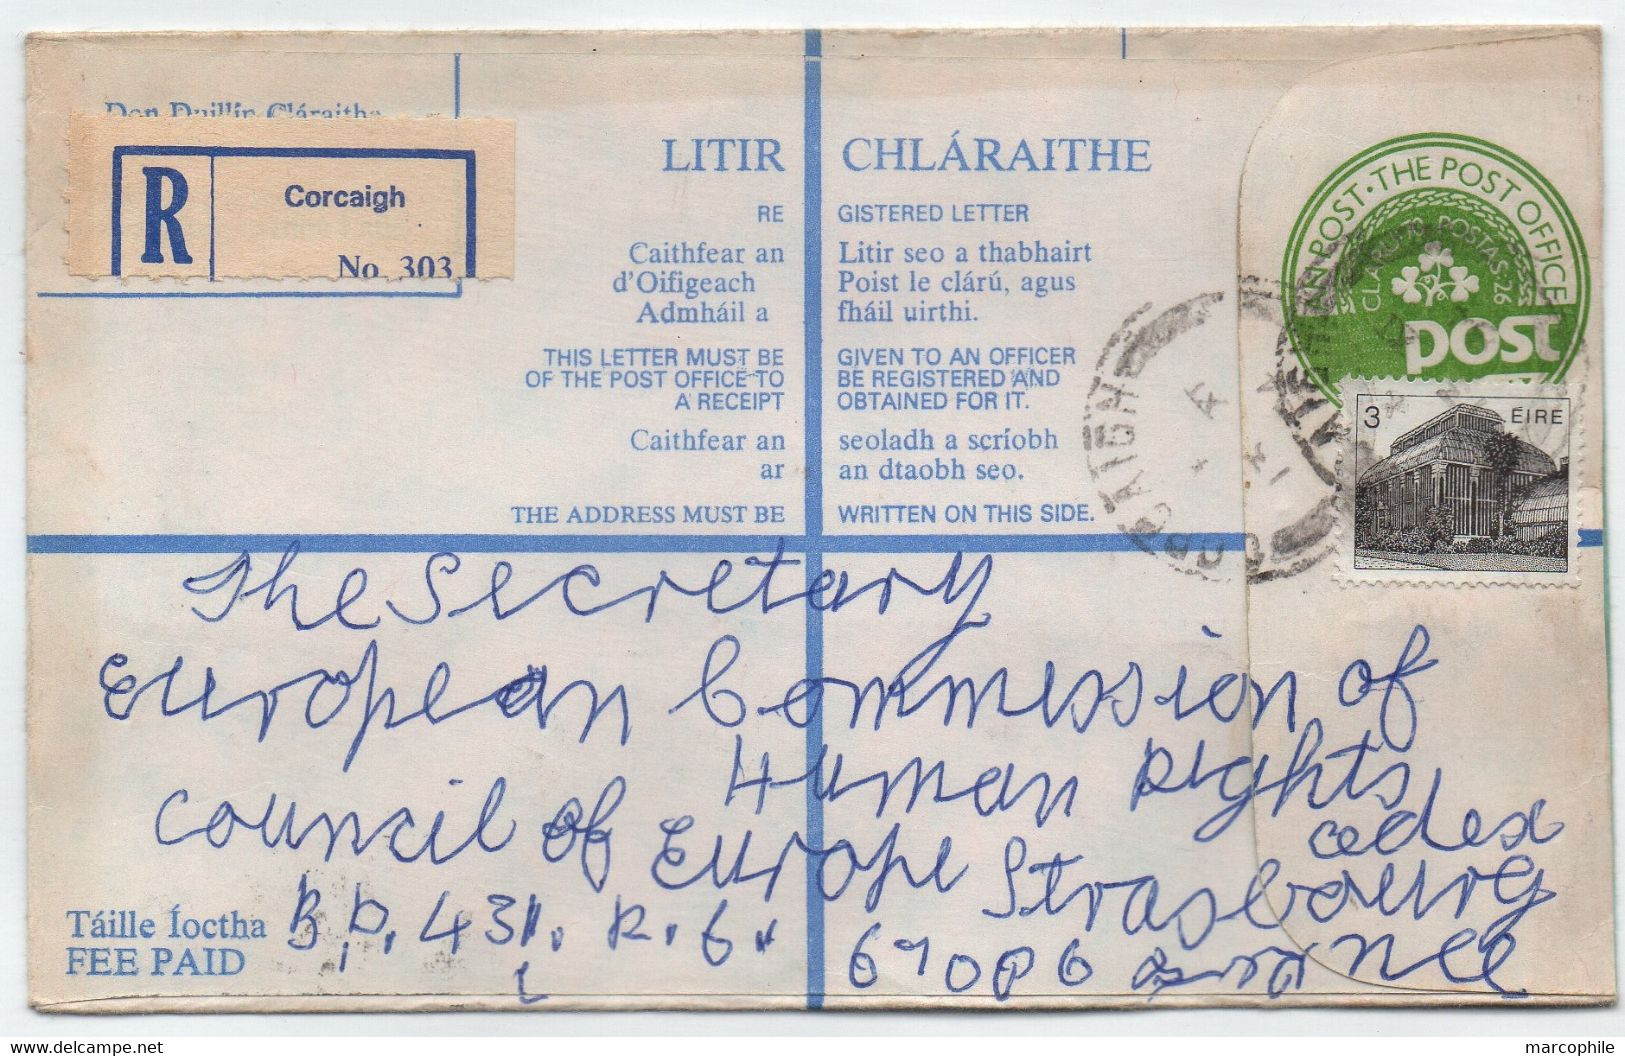 Don Duillín Cláraithe
R Corcaigh
No. 303
LITIR CHLÁRAITHE
REGISTERED LETTER
Caithfear an Litir seo a thabhairt
d'Oifigeach Poist le clárú, agus
Admháil a fháil uirthi.
THIS LETTER MUST BE GIVEN TO AN OFFICER
OF THE POST OFFICE TO BE REGISTERED AND
A RECEIPT OBTAINED FOR IT.
Caithfear an seoladh a scríobh
ar an dtaobh seo.
THE ADDRESS MUST BE WRITTEN ON THIS SIDE.
AN POST · THE POST OFFICE
CLÁRUIMH POSTAS 26
post
3 ÉIRE
CORCAIGH
The Secretary
European Commission of
Human Rights
Council of Europe Strasbourg
cedex
B.P. 431. R. 6. 67006 France
Táille Íoctha
FEE PAID
www.delcampe.net
marcophile